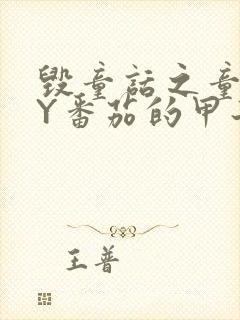 毁童话之童
Y番茄的甲
王普